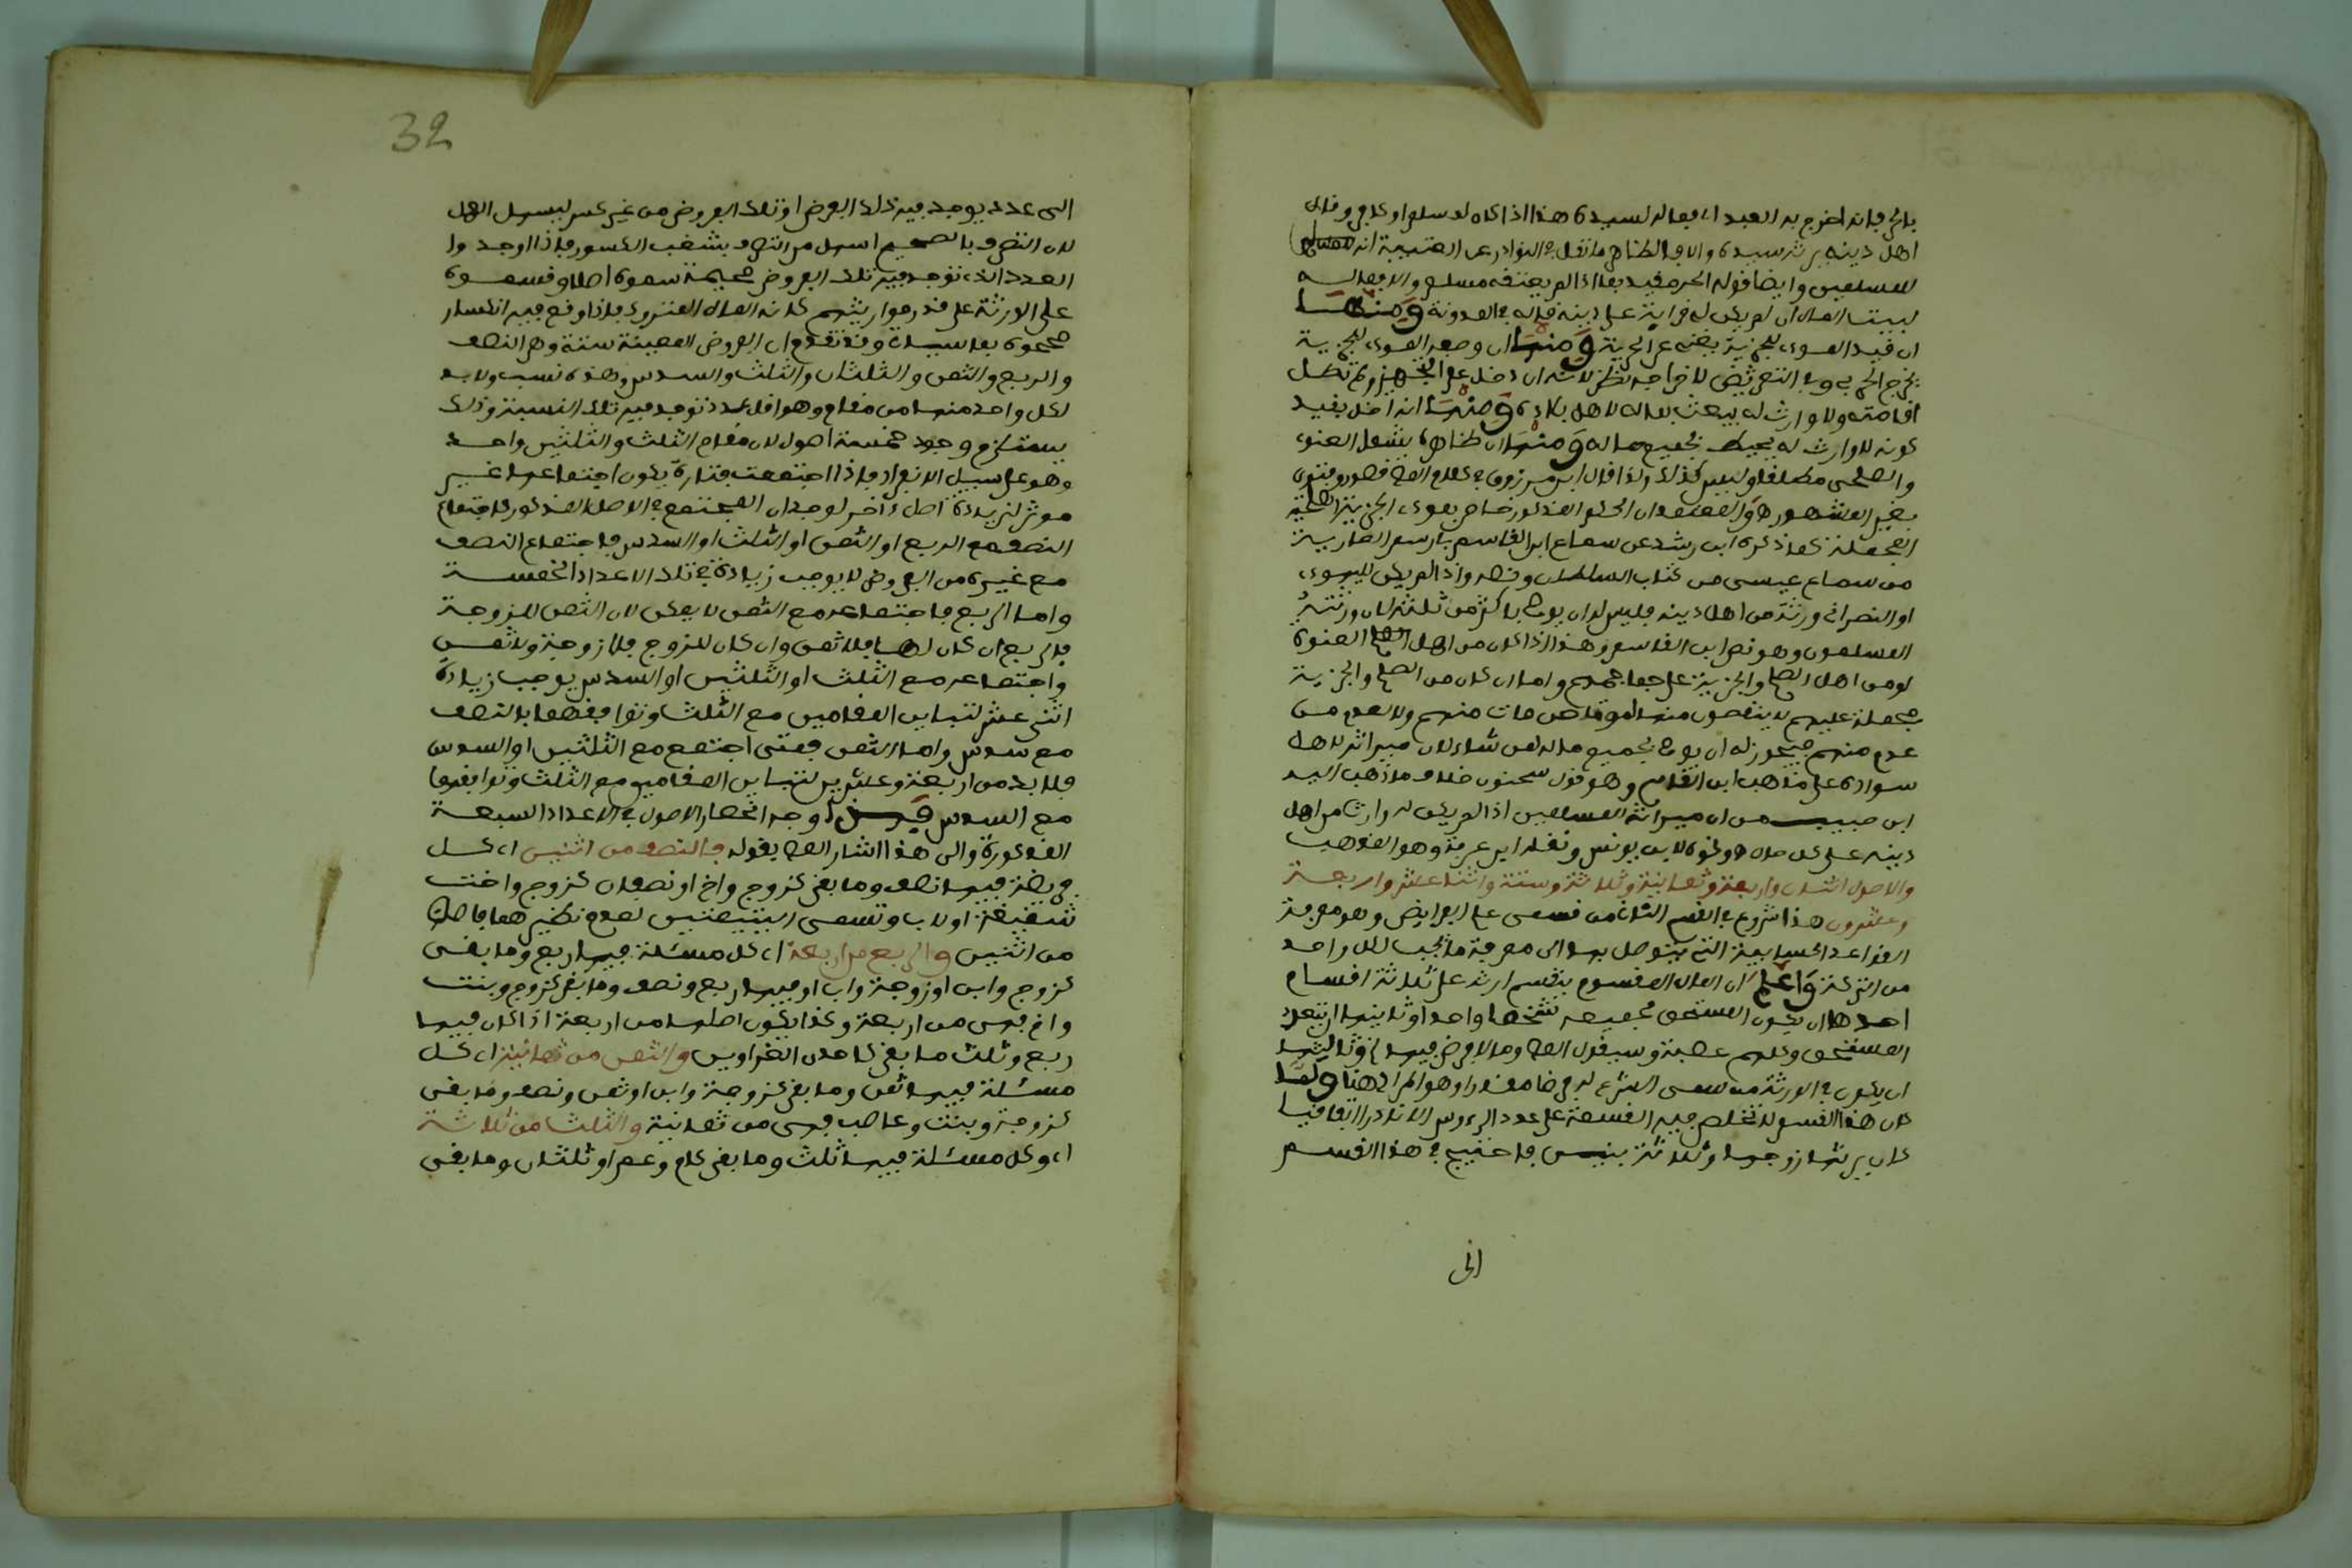 بالحر فإنه اخرج به العبد اي فماله لسيده هذا اذا كان له سلم او كافر وقال
اهل دينه يرثه سيده والا فالظاهر ما نقل في النوادر عن العتبية انه
للمسلمين وايضا قوله الحر مقيد بما اذا لم يعتقه مسلم والا فماله
لبيت المال ان لم يكن له قرابة على دينه قاله في المدونة ومنها
ان قيد المودي للجزية يغني عن الحرية ومنها ان وصف المودي للجزية
يخرج الحربي وفي التعرض لاخراجه نظر لانه ان دخل على التجهيز ولم تطل
اقامته ولا وارث له يبعث بماله لاهل بلاده ومنها انه اخل بقيد
كونه لا وارث له يحيط بجميع ماله ومنها ان ظاهره يشمل العنوي
والصلحي مطلقا وليس كذلك ولذا قال ابن مرزوق في كلام المص قصور وفتوى
بغير المشهور والمعتمد ان الحكم المذكور خاص بمودي الجزية الصلحية
المجملة كما ذكره ابن رشد عن سماع ابن القاسم
من سماع عيسى من كتاب السلطان ونصه واذا لم يكن لليهودي
او النصراني ورثة من اهل دينه فليس له ان يوصي باكثر من ثلثه لان ورثته
المسلمون وهو نص ابن القاسم وهذا اذا كان من اهل العنوة
او من اهل الصلح والجزية على جماجمهم واما ان كان من الصلح والجزية
مجملة عليهم لا ينقصون منها لموت من مات منهم ولا لعدم من
عدم منهم فيجوز له ان يوصي بجميع ماله لمن شاء لان ميراثه لاهل
سواده على مذهب ابن القاسم وهو قول سحنون خلاف ما ذهب اليه
ابن حبيب من ان ميراثه للمسلمين اذا لم يكن له وارث من اهل
دينه على كل حال ونحوه لابن يونس ونقله ابن عرفة وهو المذهب
والاصول اثنان واربعة وثمانية وثلاثة وستة واثنا عشر واربعة
وعشرون هذا شروع في القسم الثاني من قسمي علم الفرايض وهو معرفة
القواعد الحسابية التي يتوصل بها الى معرفة ما يجب لكل واحد
من التركة واعلم ان المال المقسوم ينقسم ارثه على ثلاثة اقسام
احدها ان يكون المستحق لجميعه شخصا واحدا وثانيها ان يتعدد
المستحق وكلهم عصبة وسيقول المص وما لا فرض فيها وثالثها
ان يكون في الورثة من سمى الشرع له فرضا مقدرا وهو المراد هنا ولما
كان هذا القسم لا تخلص فيه القسمة على عدد الرءوس الا نادرا اتفاقيا
كان يرثها زوجها وثلاثة بنين فاحتيج في هذا القسم
الى
32
الى عدد يوجد فيه ذلك الفرض او تلك الفروض من غير كسر ليسهل العمل
لان التصرف بالصحيح اسهل من التصرف بشعب الكسور فاذا وجدوا
العدد الذي توجد فيه تلك الفروض صحيحة سموه اصلا وقسموه
على الورثة على قدر مواريثهم كانه المال المتروك فاذا وقع فيه انكسار
صححوه بما سياتي وقد تقدم ان الفروض المعينة ستة وهي النصف
والربع والثمن والثلثان والثلث والسدس وهذه نسب ولا بد
لكل واحد منها من مقام وهو اقل عدد توجد فيه تلك النسبة وذلك
يستلزم وجود خمسة اصول لان مقام الثلث والثلثين واحد
وهو على سبيل الانفراد فاذا اجتمعت فتارة يكون اجتماعها غير
موثر لزيادة اصل ءاخر لوجدان المجتمع في الاصل المذكور كاجتماع
النصف مع الربع او الثمن او الثلث او السدس فاجتماع النصف
مع غيره من الفروض لا يوجب زيادة في تلك الاعداد الخمسة
واما الربع فاجتماعه مع الثمن لا يمكن لان الثمن للزوجة
فالربع ان كان لها فلا ثمن وان كان للزوج فلا زوجة ولا ثمن
واجتماعه مع الثلث او الثلثين او السدس يوجب زيادة
اثني عشر لتباين المقامين مع الثلث وتوافقهما بالنصف
مع سدس واما الثمن فمتى اجتمع مع الثلثين او السدس
فلا بد من اربعة وعشرين لتباين المقامين مع الثلث وتوافقهما
مع السدس فهذا وجه انحصار الاصول في الاعداد السبعة
المذكورة والى هذا اشار المص بقوله فالنصف من اثنين اي كل
فريضة فيها نصف وما بقي كزوج واخ او نصفان كزوج واخت
شقيقة او لاب وتسمى اليتيمتين لعدم نظيرهما فاصلها
من اثنين والربع من اربعة اي كل مسئلة فيها ربع وما بقي
كزوج وابن او زوجة واب او فيها ربع ونصف وما بقي كزوج وبنت
واخ فهي من اربعة وكذا يكون اصلها من اربعة اذا كان فيها
ربع وثلث ما بقي كاحدى الغراوين والثمن من ثمانية اي كل
مسئلة فيها ثمن وما بقي كزوجة وابن او ثمن ونصف وما بقي
كزوجة وبنت وعاصب فهي من ثمانية والثلث من ثلاثة
اي وكل مسئلة فيها ثلث وما بقي كام وعم او ثلثان وما بقي